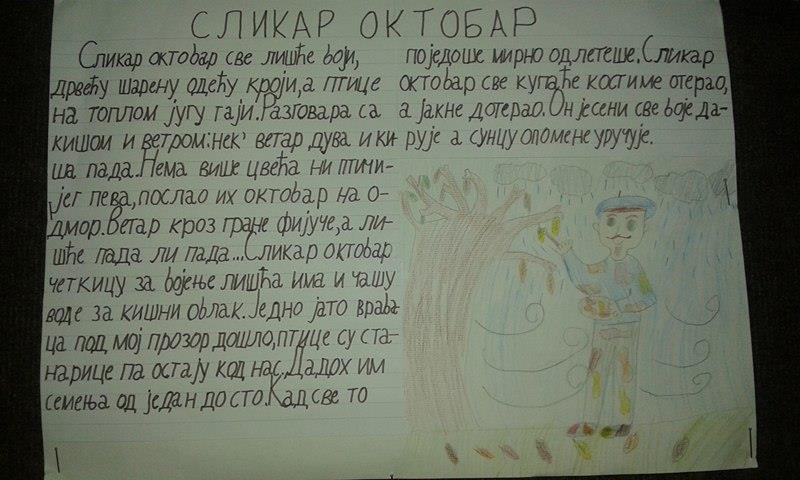 СЛИКАР ОКТОБАР
Сликар октобар све лишће боји,
дрвећу шарену одећу кроји, а птице
на топлом југу гаји. Разговара са
кишом и ветром: нек' ветар дува и ки-
ша пада. Нема више цвећа ни птичи-
јег пева, послао их октобар на о-
дмор. Ветар кроз гране фијуче, а ли-
шће пада ли пада... Сликар октобар
четкицу за бојење лишћа има и чашу
воде за кишни облак. Једно јато враба-
ца под мој прозор дошло, птице су ста-
нарице па остају код нас. Дадох им
семења од један до сто. Кад све то
поједоше мирно одлетеше. Сликар
октобар све купаће костиме отерао,
а јакне дотерао. Он јесени све боје да-
рује а сунцу опомене уручује.